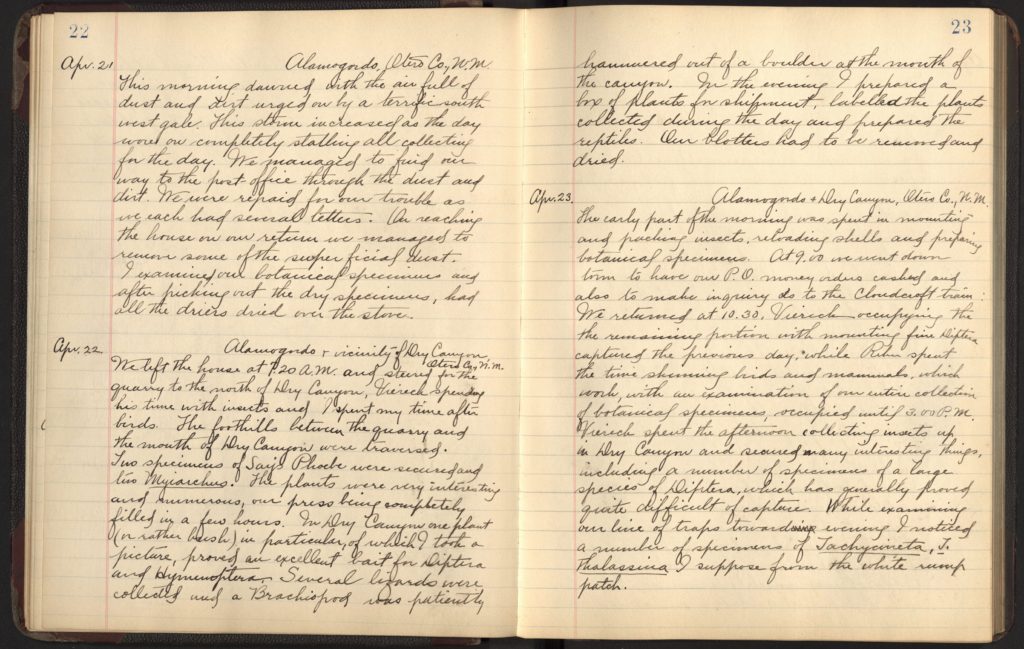 22
Apr. 21
Alamogordo, Otero Co., N.M.
This morning dawned with the air full of
dust and dirt urged on by a terrific south
west gale. This storm increased as the day
wore on completely stalling all collecting
for the day. We managed to find our
way to the post office through the dust and
dirt. We were repaid for our trouble as
we each had several letters. On reaching
the house on our return we managed to
remove some of the superficial dust.
I examined our botanical specimens and
after picking out the dry specimens, had
all the driers dried over the stove.
Apr. 22.
Alamogordo + vicinity of Dry Canyon,
Otero Co., N.M.
We left the house at 7.20 A.M. and steered for the
quarry to the north of Dry Canyon, Viereck spending
his time with insects and I spent my time after
birds. The foothills between the quarry and
the mouth of Dry Canyon were traversed.
Two specimens of Say's Phoebe were secured and
two Myiarchus. The plants were very interesting
and numerous, our press being completely
filled in a few hours. In Dry Canyon one plant
(or rather bush) in particular, of which I took a
picture, proved an excellent bait for Diptera
and Hymenoptera. Several lizards were
collected and a Brachiopod was patiently
23
hammered out of a boulder at the mouth of
the canyon. In the evening I prepared a
box of plants for shipment, labelled the plants
collected during the day and prepared the
reptiles. Our blotters had to be removed and
dried.
Apr. 23.
Alamogordo + Dry Canyon, Otero Co., N.M.
The early part of the morning was spent in mounting
and packing insects, reloading shells and preparing
botanical specimens. At 9.00 we went down
town to have our P.O. money orders cashed and
also to make inquiry as to the Cloudcroft train.
We returned at 10.30, Viereck occupying the
the remaining portion with mounting fine Diptera
captured the previous day, while Rehn spent
the time skinning birds and mammals, which
work, with an examination of our entire collection
of botanical specimens, occupied until 3.00 P.M.
Viereck spent the afternoon collecting insects up
in Dry Canyon and secured many interesting things,
including a number of specimens of a large
species of Diptera, which has generally proved
quite difficult of capture. While examining
our line of traps toward evening I noticed
a number of specimens of Tachycineta, T.
thalassina I suppose from the white rump
patch.